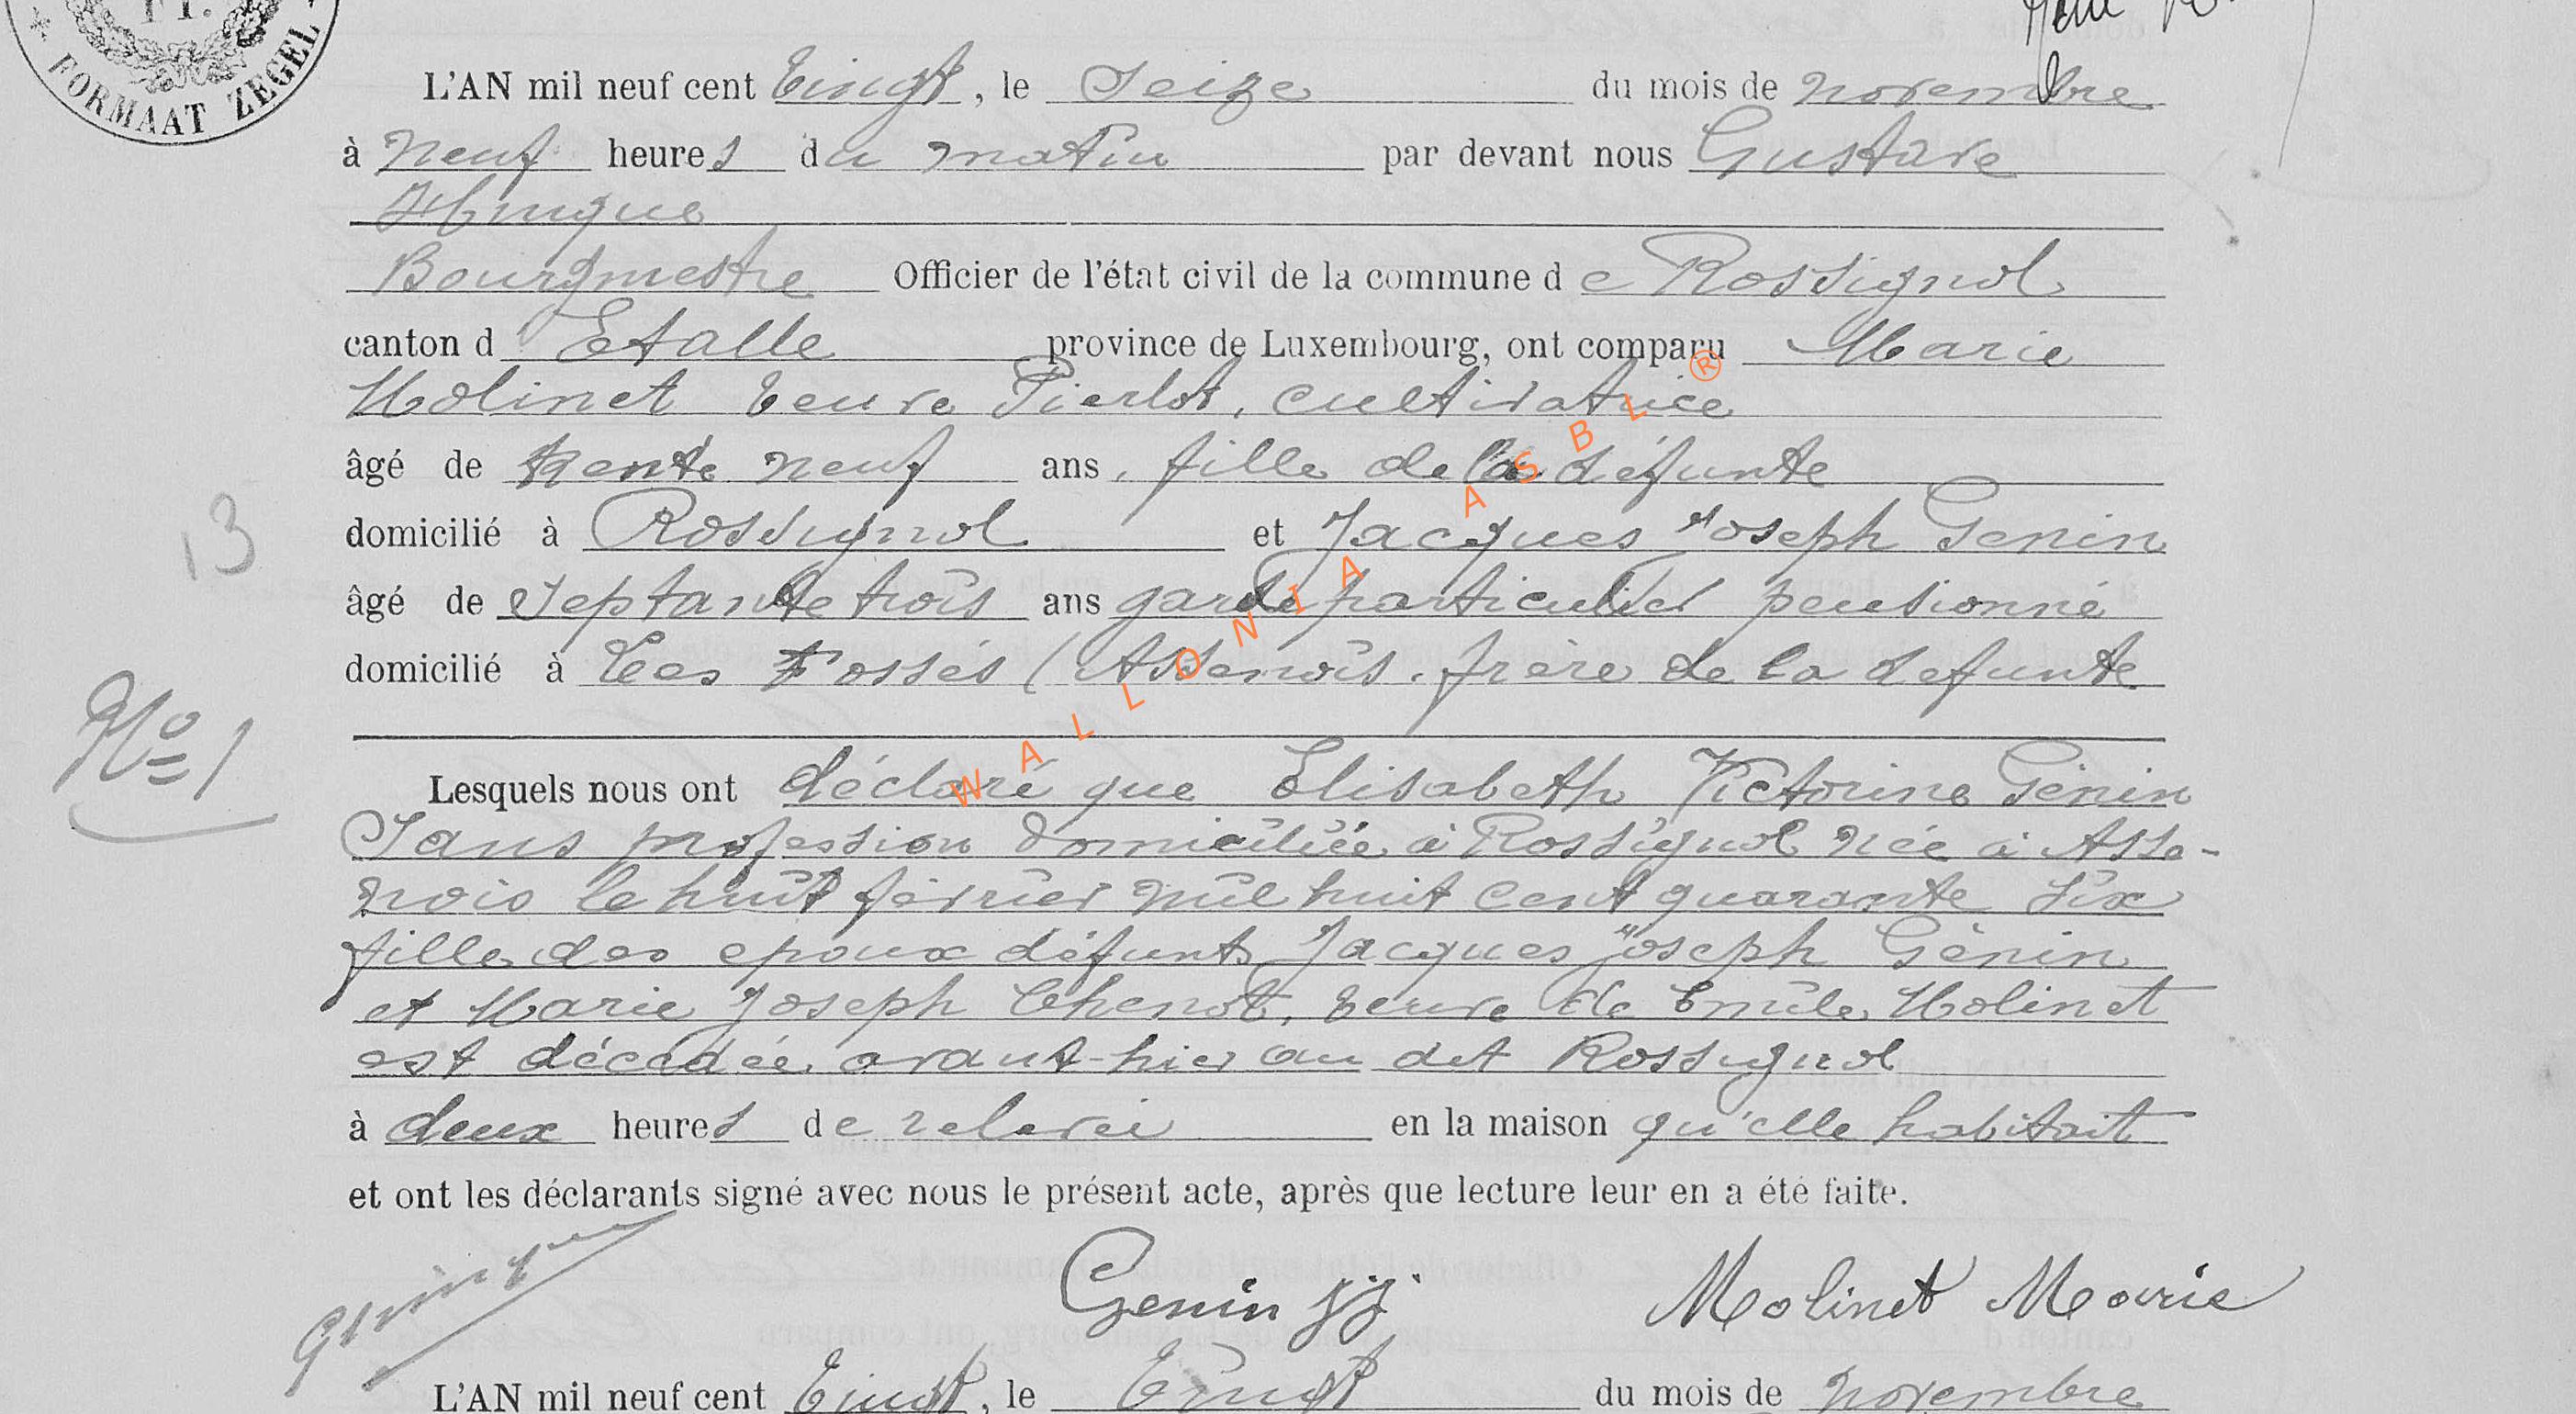 FORMAAT ZEGEL
L'AN mil neuf cent vingt, le seize du mois de novembre
à neuf heures du matin par devant nous Gustave
Hunque
Bourgmestre Officier de l'état civil de la commune de Rossignol
canton d'Etalle province de Luxembourg, ont comparu Marie
Molinet veuve Pierlot, cultivatrice
âgé de trente neuf ans, fille de la défunte
domicilié à Rossignol et Jacques Joseph Genin
13
âgé de septante trois ans garde particulier pensionné
domicilié à Les Fossés (Assenois. frère de la defunte
N° 1
Lesquels nous ont déclaré que Elisabeth Victorine Génin
Sans profession domiciliée à Rossignol née à Asse-
nois le huit février mil huit cent quarante six
fille des epoux défunts Jacques Joseph Génin
et Marie Joseph Chenot, veuve de Emile Molinet
est décédée avant-hier au dit Rossignol
à deux heures de relevée en la maison qu'elle habitait
et ont les déclarants signé avec nous le présent acte, après que lecture leur en a été faite.
Genin JJ. Molinet Marie
L'AN mil neuf cent vingt, le vingt du mois de novembre
WALLONIA ASBL ®